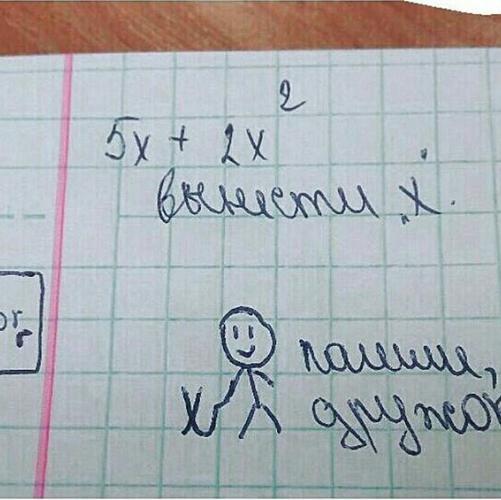 5x + 2x²
вынести „x".
x
дружок